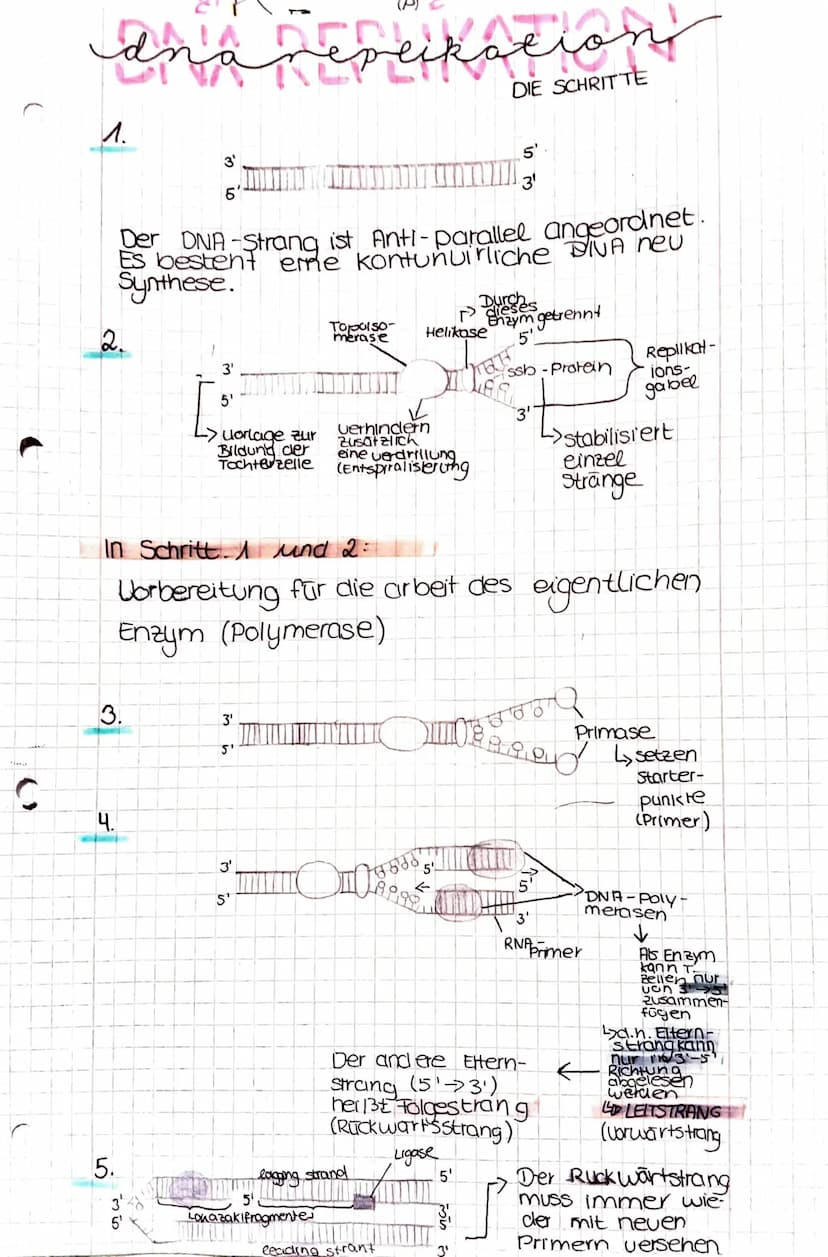 DNA REPLIKATION
dna replikation
DIE SCHRITTE
1.
3' 5'
5' 3'
Der DNA-Strang ist Anti-parallel angeordnet.
Es besteht eine kontunuirliche DNA neu
Synthese.
2.
Topoiso-
merase
Helikase
Durch
dieses
Enzym getrennt
3'
5'
5'
3'
ssb-Protein
Replikat-
ions-
gabel
Vorlage zur
Bildung der
Tochterzelle
verhindern
zusätzlich
eine verdrillung
(Entspiralisierung
stabilisiert
einzel
Stränge
In Schritt 1 und 2:
Vorbereitung für die arbeit des eigentlichen
Enzym (Polymerase)
3.
3'
5'
Primase
setzen
Starter-
punkte
(Primer)
4.
3'
5'
5'
5'
3'
DNA-Poly-
merasen
RNA-Primer
Als Enzym
kann T.
zellen nur
von 3'→5'
zusammen-
fügen
d.h. Eltern-
strang kann
nur in 3'-5'
Richtung
abgelesen
werden
LEITSTRANG
(Vorwärtstrang
Der andere Eltern-
strang (5'→3')
heißt Folgestrang
(Rückwärtsstrang)
5.
Ligase
lagging strand
5'
3'
5'
5'
3'
5'
3'
Lonazakifragmente
leading strant
Der Rückwärtstrang
muss immer wie-
der mit neuen
Primern versehen